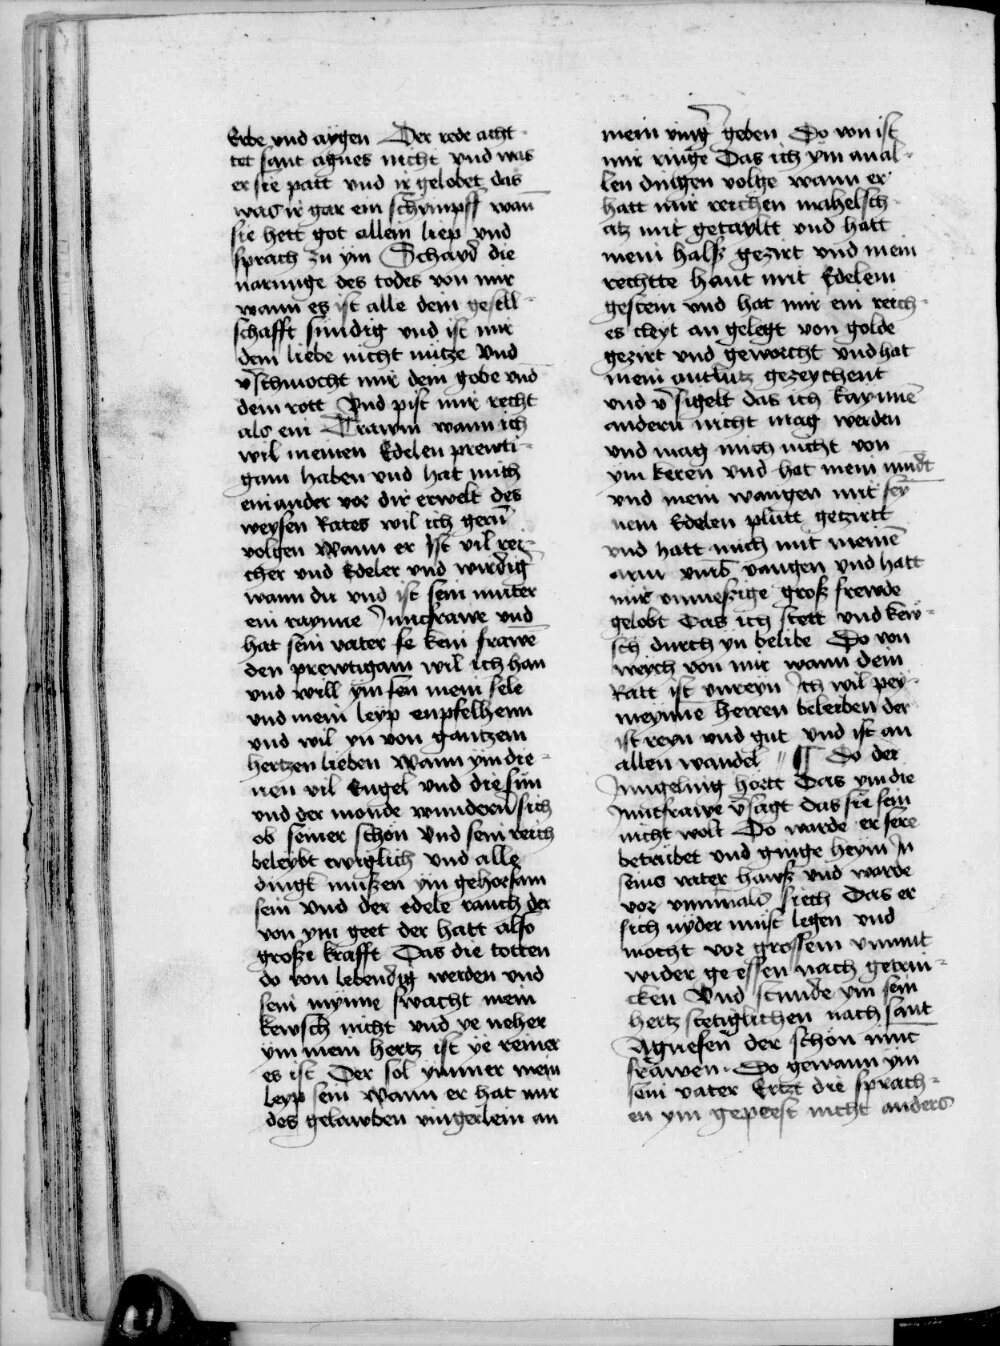 Erbe vnd aygen Der rede acht-
tet sant agnes nicht vnd was
er sie patt vnd ir gelobet das
was ir gar ein schimpff wan̄
sie hett got allein liep vnd
sprach zu ym Schayd die
narunge des todes von mir
wann es ist alle dein gesell-
schafft sundig vnd ist mir
dein liebe nicht nutze Vnd
v̄schmocht mir dein gobe vnd
dein rott Vnd pist mir recht
als ein Trawm wann ich
wil meinen Edelen prewti-
gam haben vnd hat mich
ein ander vor dir erwelt des
weysen Rates wil ich gern̄
volgen Wann er Ist vil rei-
cher vnd Edeler vnd wirdig
wann du vnd ist sein muter
ein rayniue Junckfrawe vnd
hat sein vater se kein frawē
den prewtigam wil ich han
vnd will ym sen mein sele
vnd mein leyp enpfelhenn
vnd wil yn von gantzem
hertzen lieben Wann ym die-
nen vil Engel vnd die sun
vnd der monde wundern sich
ob seiner schon Vnd sein reich
beleybt ewiglich Vnd alle
dingk mußen ym gehorsam
sein Vnd der edele rauch der
von ym geet der hatt also
große krafft Das die totten
do von lebendig werden vnd
sein mynne swacht mein
kewsch nicht vnd ye neher
ym mein hertz ist ye reiner
es ist Der sol ymmer mein
leyp sein Wann er hat mir
des gelawben vingerlein an
mein ving̃ geben Do von ist
mir ringe Das ich ym an al-
len dingen volge wann er
hatt mir reichen mahelsch-
atz mit getayltt vnd hatt
mein halß gezirt vnd mein
rechtte hant mit Edelem
gestein vnd hat mir ein reich-
es cleyt an gelegt von golde
gezirt vnd geworcht vnd hat
mein antlutz gezeychent
vnd v̄sigelt das ich kaynnē
andern nicht mag werden
vnd mag mich nicht von
ym keren vnd hat mein mūdt
vnd mein wangen mit sey
nem Edelen plutt getzirtt
vnd hatt mich mit meinē
arm vmb vangen vnd hatt
mir vnmeßige groß frewde
gelobt Das ich stett vnd kew-
sch durch yn belibe Do von
weych von mir wann dein
Ratt ist vnreyn Ich wil pey-
meynne herren beleiben der
ist reyn vnd gut vnd ist an
allen wandel // ¶ Do der
Jungeling hortt Das ym die
Junckfrawe v̄sagt das sie sein
nicht wolt Do warde er sere
betrubet vnd ginge heym In
seins vater hawß vnd warde
vor vnmuß siech Das er
sich nyder must legen vnd
mocht vor grossem vnmut
wider geessen nach getrin-
cken Vnd stunde ym sein
hertz stetiglichen nach sant
Agnesen der schon iunck
frawen. Do gewann ym
sein vater Ertzt die sprach-
en ym geprest nicht anders